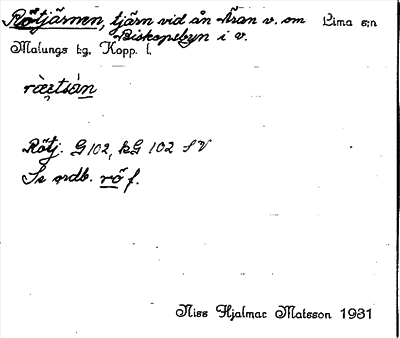 Rötjärnen, tjärn vid ån Äran v. om Lima s:n
Biskopsbyn i v.
Malungs tg. Kopp. l.
Rötj. G 102, kG 102 SV
Se ordb. rö f.
Niss Hjalmar Matsson 1931